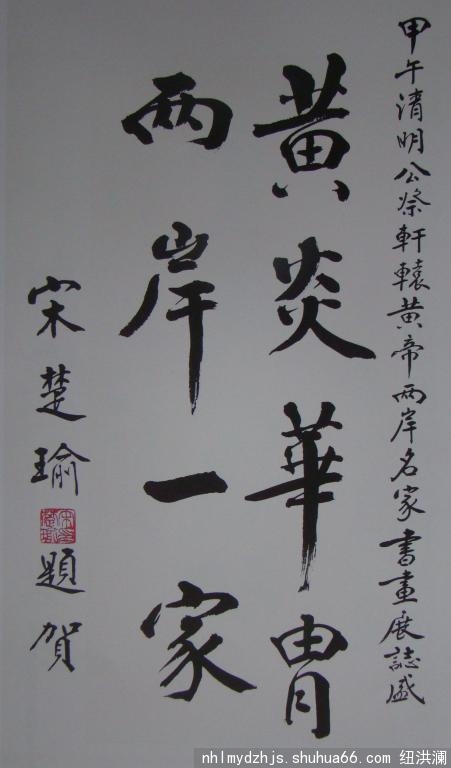 甲午清明公祭軒轅黄帝两岸名家書畫展誌盛
黄炎華胄
两岸一家
宋楚瑜
題賀
nhlmydzhjs.shuhua66.com 纽洪澜